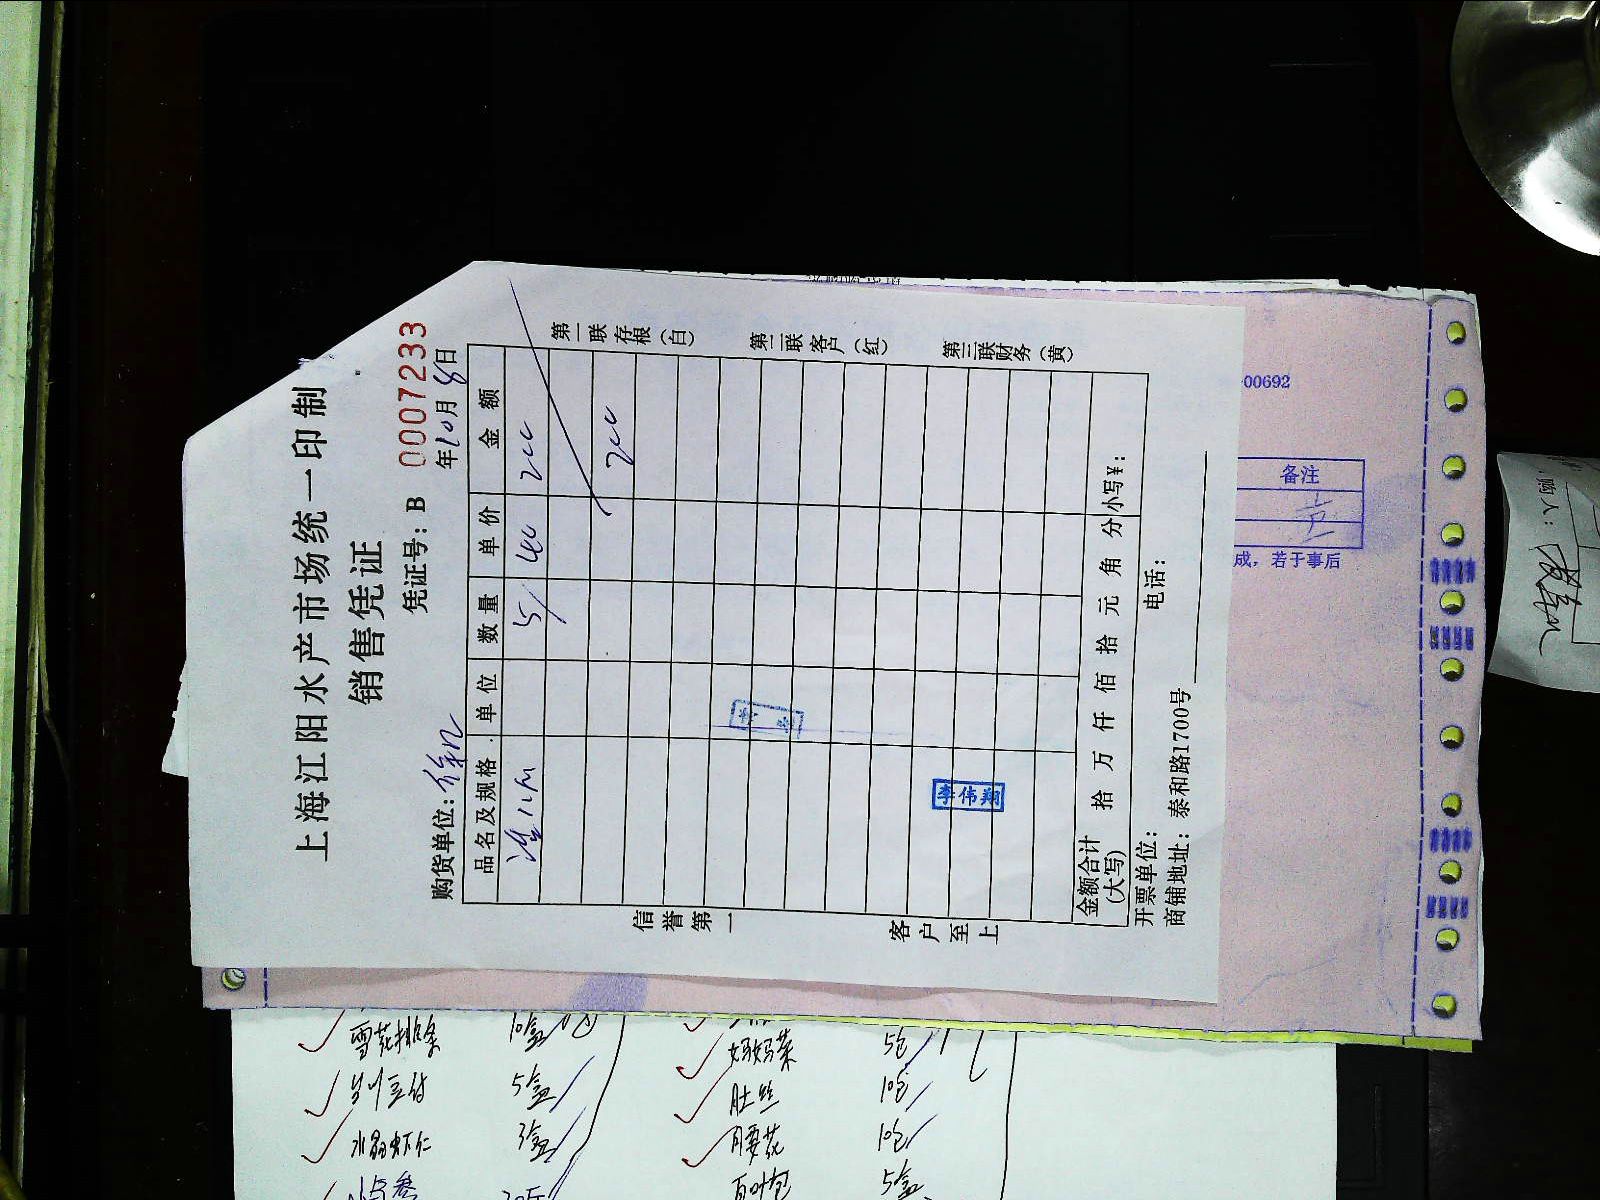 上海江阳水产市场统一印制
销售凭证
凭证号：B 0007233
购货单位：
年10月8日
品名及规格 单位 数量 单价 金额
5 40 200
200
金额合计(大写) 拾 万 仟 佰 拾 元 角 分 小写¥：
开票单位： 电话：
商铺地址：泰和路1700号
第一联存根(白)
第二联客户(红)
第三联财务(黄)
信誉第一
客户至上
李伟翔
00692
备注
成，若于事后
购人：
雪花排条 10盒
5盒
水晶虾仁 3盒
妈妈菜 5包
肚丝 10包
腰花 10包
百叶包 5盒